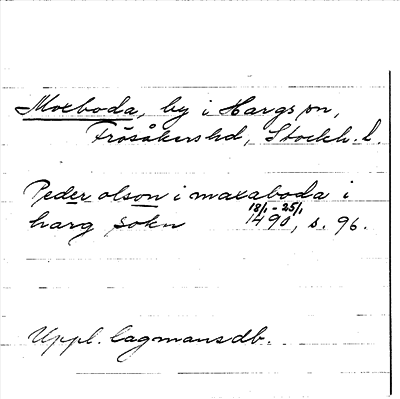 Moxboda, by i Hargs sn,
Frösåkers hd, Stockh. l.
Peder olson i maxaboda i
harg sokn 18/1 - 25/1 1490, s. 96.
Uppl. lagmansdb.